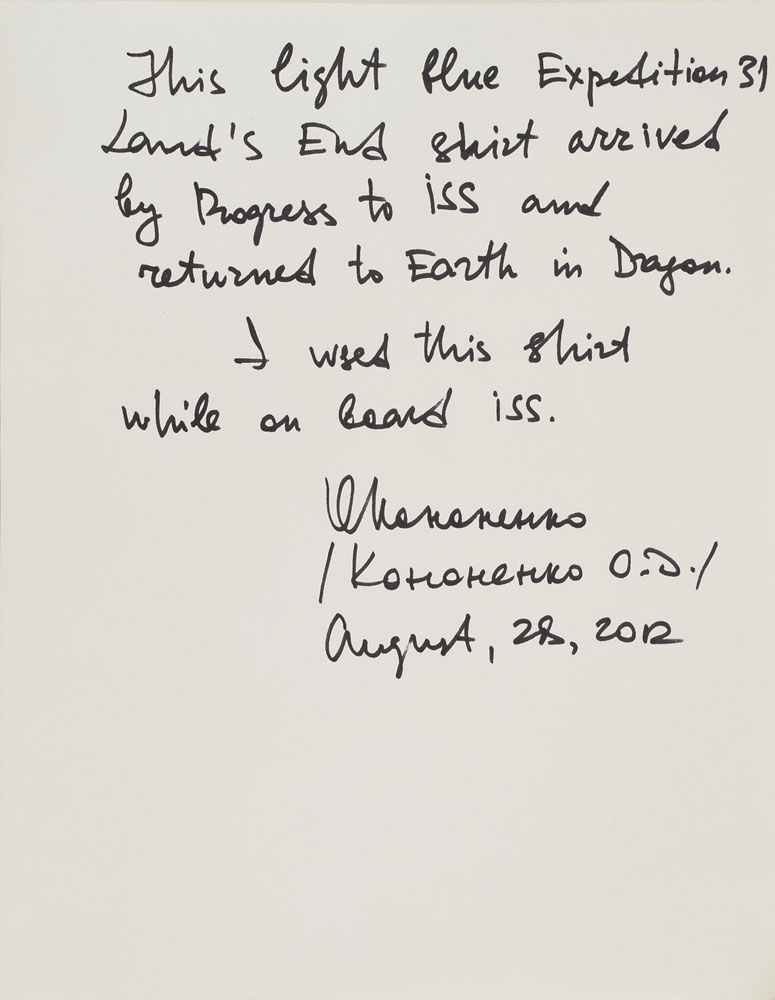 This light blue Expedition 31
Land's End shirt arrived
by Progress to ISS and
returned to Earth in Dragon.
I used this shirt
while on board ISS.
Окононенко
/Кононенко О.Д./
August, 28, 2012